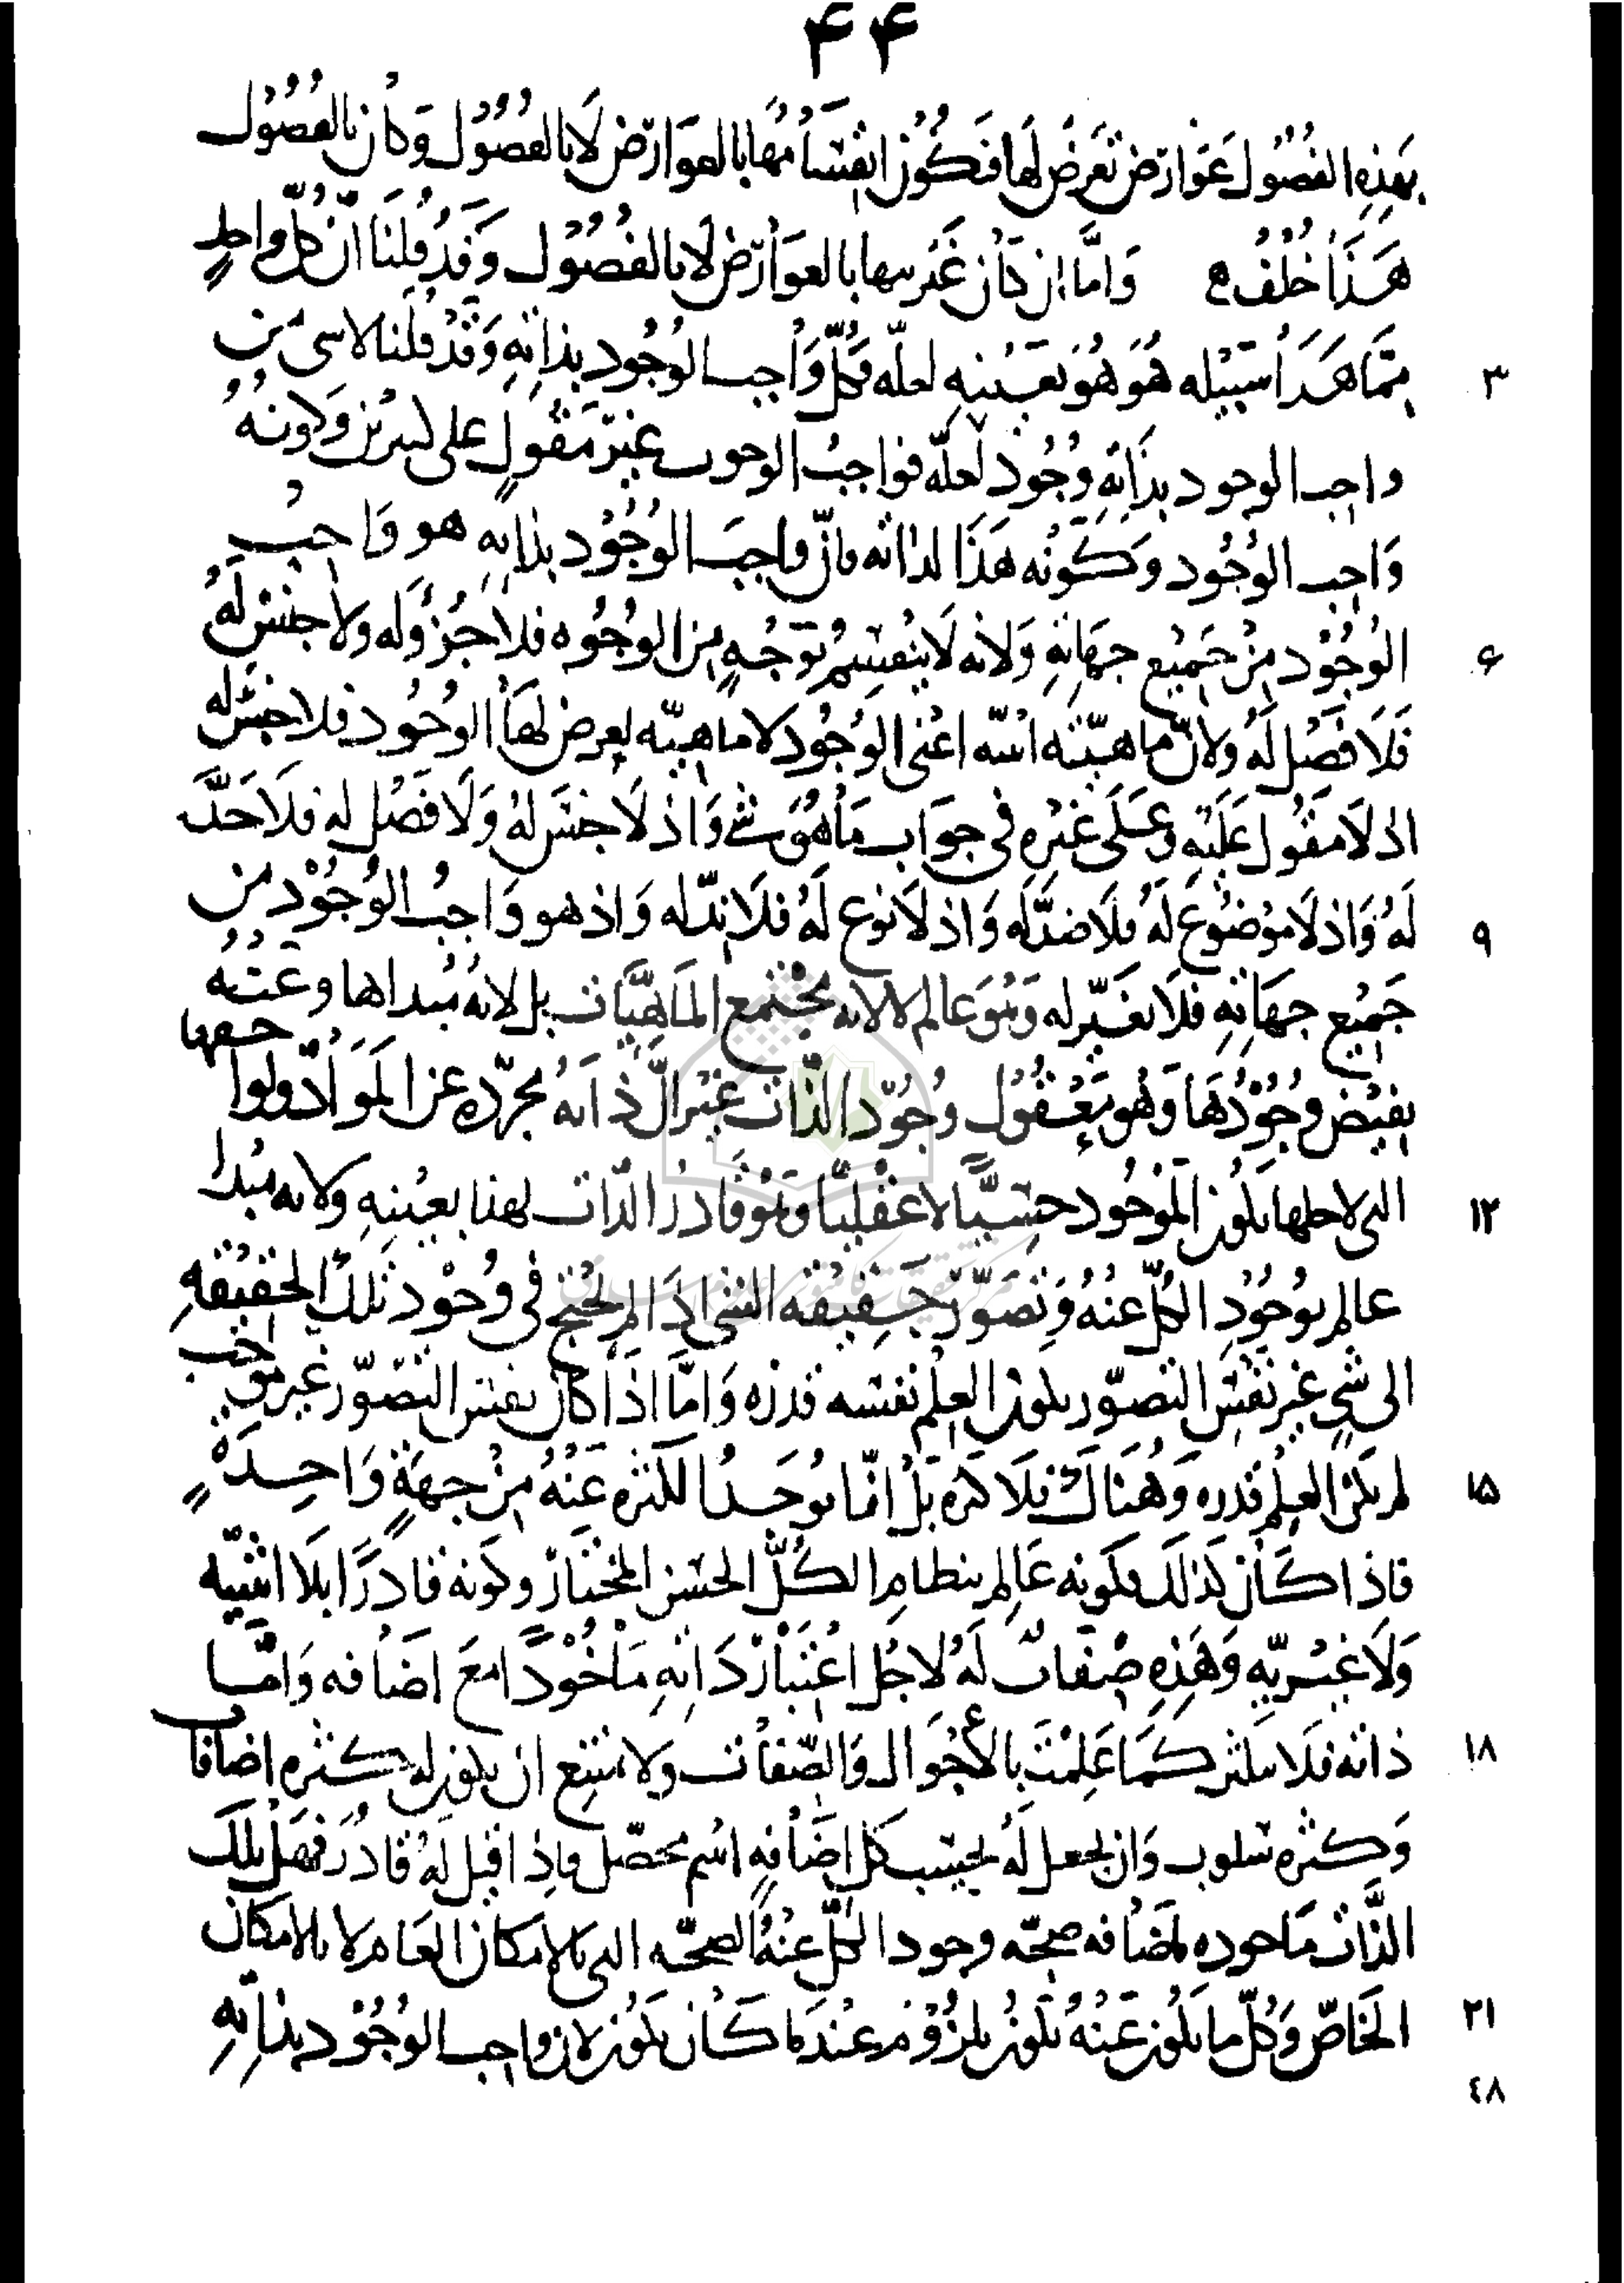 ٤٤
بهذه الفصول عوارض تعرض لها فتكون انقسامها بالعوارض لا بالفصول وكان بالفصول
هذا خلف واما ان كان غيريتها بالعوارض لا بالفصول وقد قلنا ان كل واحد
٣ مما هذا سبيله هو هو بعينه لعله فكل واجب الوجود بذاته وقد قلنا لا شى من
واجب الوجود بذاته وجود لعله فواجب الوجود غير مقول على كثيرين وكونه
واجب الوجود وكونه هذا لذاته فان واجب الوجود بذاته هو واجب
۶ الوجود من جميع جهاته ولانه لا ينقسم بوجه من الوجوه فلا جزو له ولا جنس له
فلا فصل له ولان ماهيته انيته اعنى الوجود لا ماهيه يعرض لها الوجود فلا جنس له
اذ لا مقول عليه وعلى غيره في جواب ما هو شي واذ لا جنس له ولا فصل له فلا حد
٩ له واذ لا موضوع له فلا ضد له واذ لا نوع له فلا ند له واذ هو واجب الوجود من
جميع جهاته فلا تغير له وهو عالم لا لانه مجتمع الماهيات بل لانه مبداها وعنه
يفيض وجودها وهو معقول وجود الذات غير ان ذاته مجرده عن المواد ولواحقها
١٢ التى لاجلها يكون الموجود حسيا لا عقليا وهو قادر الذات لهذا بعينه ولانه مبدا
عالم بوجود الكل عنه وتصور حقيقه الشى اذا لم يحتج في وجود تلك الحقيقه
الى شى غير نفس التصور يكون العلم نفسه قدره واما اذا كان نفس التصور غير موجب
١۵ لم يكن العلم قدره وهناك فلا كثره بل انما يوجد الكثره عنه من جهة واحدة
فاذا كان كذلك فكونه عالم بنظام الكل الحسن المختار وكونه قادرا بلا اثنينيه
ولا غيريه وهذه صفات له لاجل اعتبار ذاته ماخوذا مع اضافه واما
١٨ ذاته فلا يتكثر كما علمت بالأحوال والصفات ولا يمتنع ان يكون له كثره اضافات
وكثره سلوب وان يجعل له بحسب كل اضافه اسم محصل فاذا قيل له قادر فهل تلك
الذات ماخوده باضافه صحه وجود الكل عنه الصحه التى بالامكان العام لا بالامكان
٢١ الخاص وكل ما يكون عنه يكون بلزوم عند ما كان يكون لان واجب الوجود بذاته
٤٨